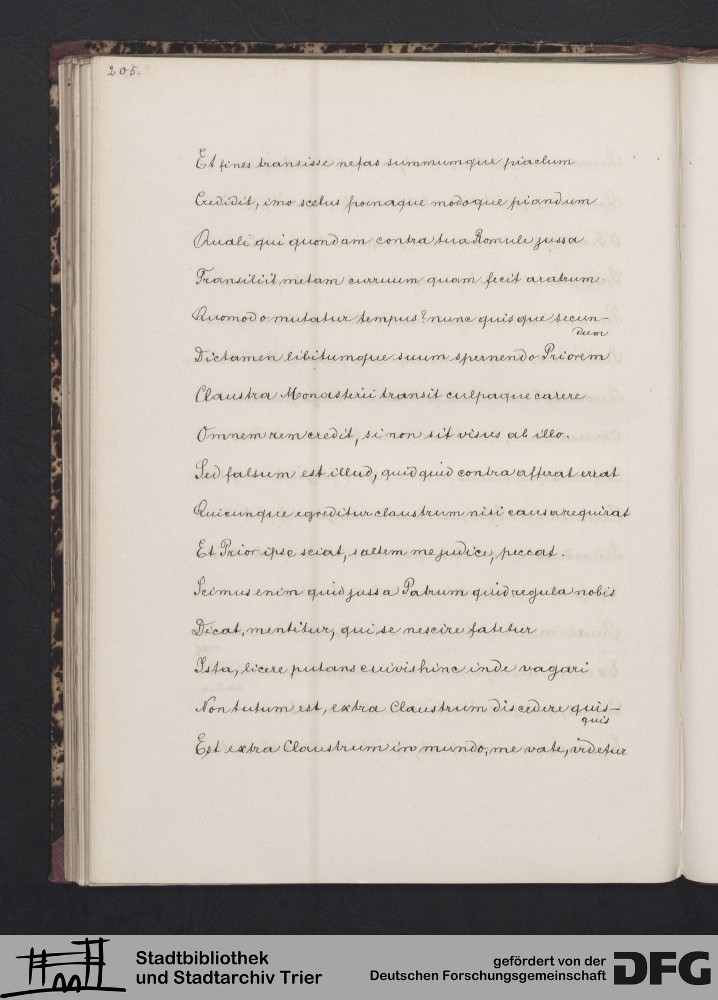 205.
Et fines transisse nefas summumque piaclum
Credidit, imo scelus poenaque modoque piandum
Quali qui quondam contra tua Romule jussa
Transiliit metam curruum quam fecit aratrum
Quomodo mutatur tempus? nunc quisque secun-
dum
Dictamen libitumque suum spernendo Priorem
Claustra Monasterii transit culpaque carere
Omnem rem credit, si non sit visus ab illo.
Sed falsum est illud, quidquid contra afferat errat
Quicunque egreditur claustrum nisi causa requirat
Et Prior ipse sciat, saltem me judice, peccat.
Scimus enim quid jussa Patrum quid regula nobis
Dicat, mentitur, qui se nescire fatetur
Ista, licere putans cuivis hinc inde vagari
Non tutum est, extra Claustrum discedere quis-
quis
Est extra Claustrum in mundo, me vate, videtur
Stadtbibliothek
und Stadtarchiv Trier
gefördert von der
Deutschen Forschungsgemeinschaft
DFG